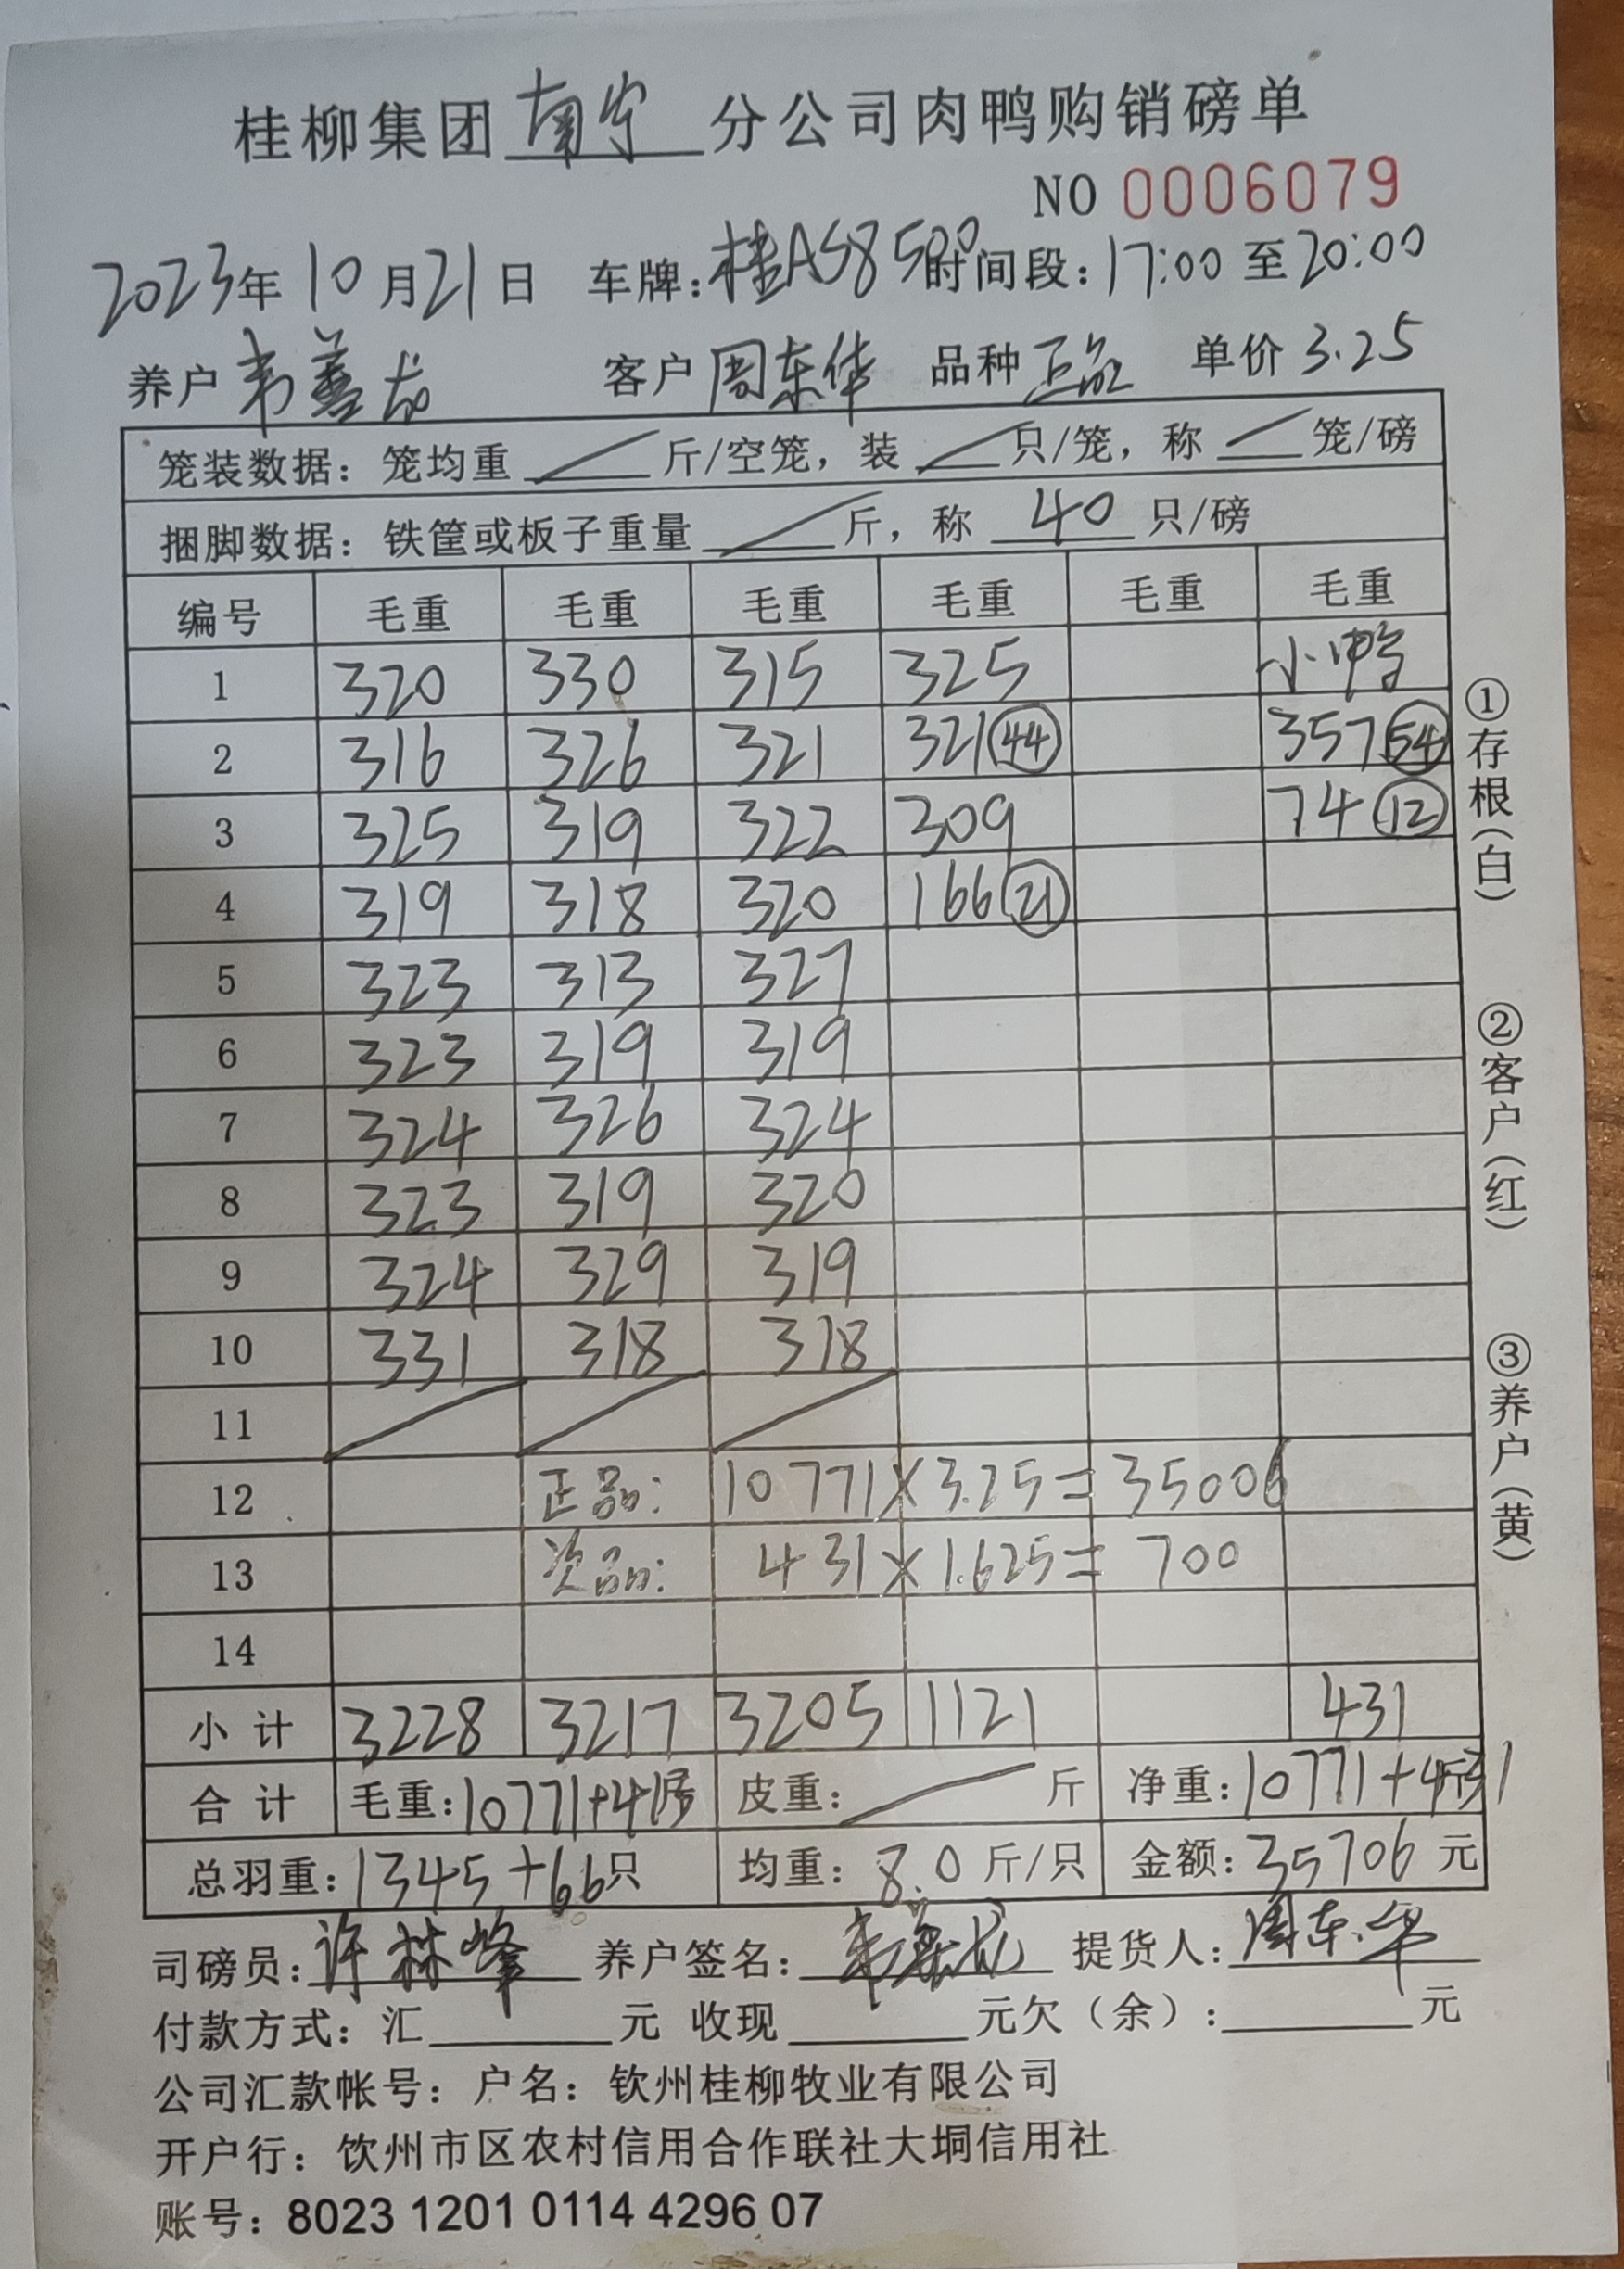 桂柳集团南宁分公司肉鸭购销磅单
NO 0006079
2023年10月21日 车牌:桂AS8500时间段:17:00至20:00
养户 韦善龙 客户 周东华 品种 正品 单价 3.25
笼装数据：笼均重 斤/空笼，装 只/笼，称 笼/磅
捆脚数据：铁筐或板子重量 斤，称 40 只/磅
编号 毛重 毛重 毛重 毛重 毛重 毛重
1 320 330 315 325 小鸭
2 316 326 321 321(44) 357(54)
3 325 319 322 309 74(12)
4 319 318 320 166(21)
5 323 313 327
6 323 319 319
7 324 326 324
8 323 319 320
9 324 329 319
10 331 318 318
11
12 正品: 10771×3.25=35006
13 次品: 431×1.625=700
14
小计 3228 3217 3205 1121 431
合计 毛重:10771+431斤 皮重: 斤 净重:10771+431斤
总羽重:1345+66只 均重:8.0斤/只 金额:35706元
司磅员:许林峰 养户签名:韦善龙 提货人:周东华
付款方式：汇 元 收现 元欠（余）: 元
公司汇款帐号：户名：钦州桂柳牧业有限公司
开户行：饮州市区农村信用合作联社大垌信用社
账号：8023 1201 0114 4296 07
①存根（白）
②客户（红）
③养户（黄）